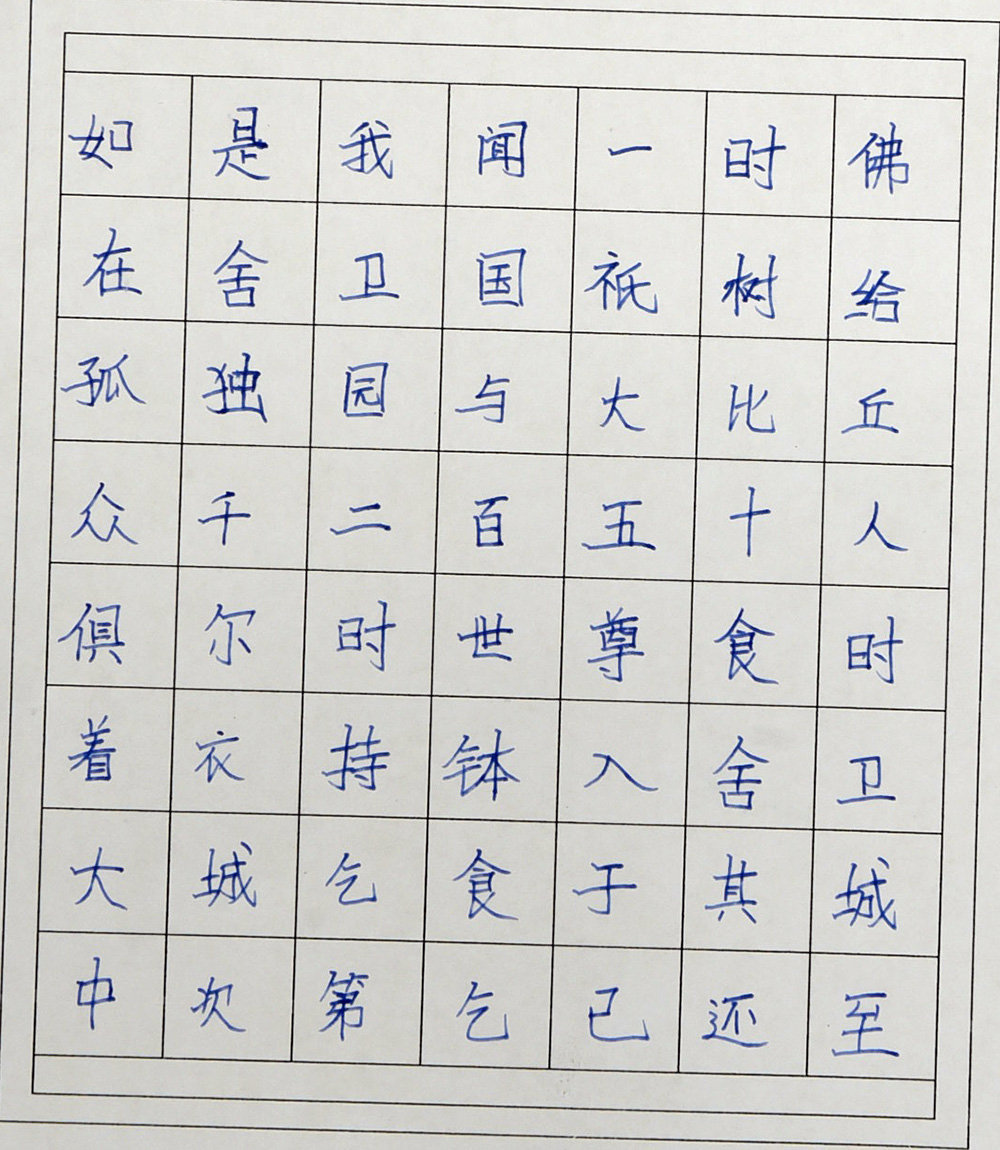 如是我闻一时佛
在舍卫国祇树给
孤独园与大比丘
众千二百五十人
俱尔时世尊食时
着衣持钵入舍卫
大城乞食于其城
中次第乞已还至